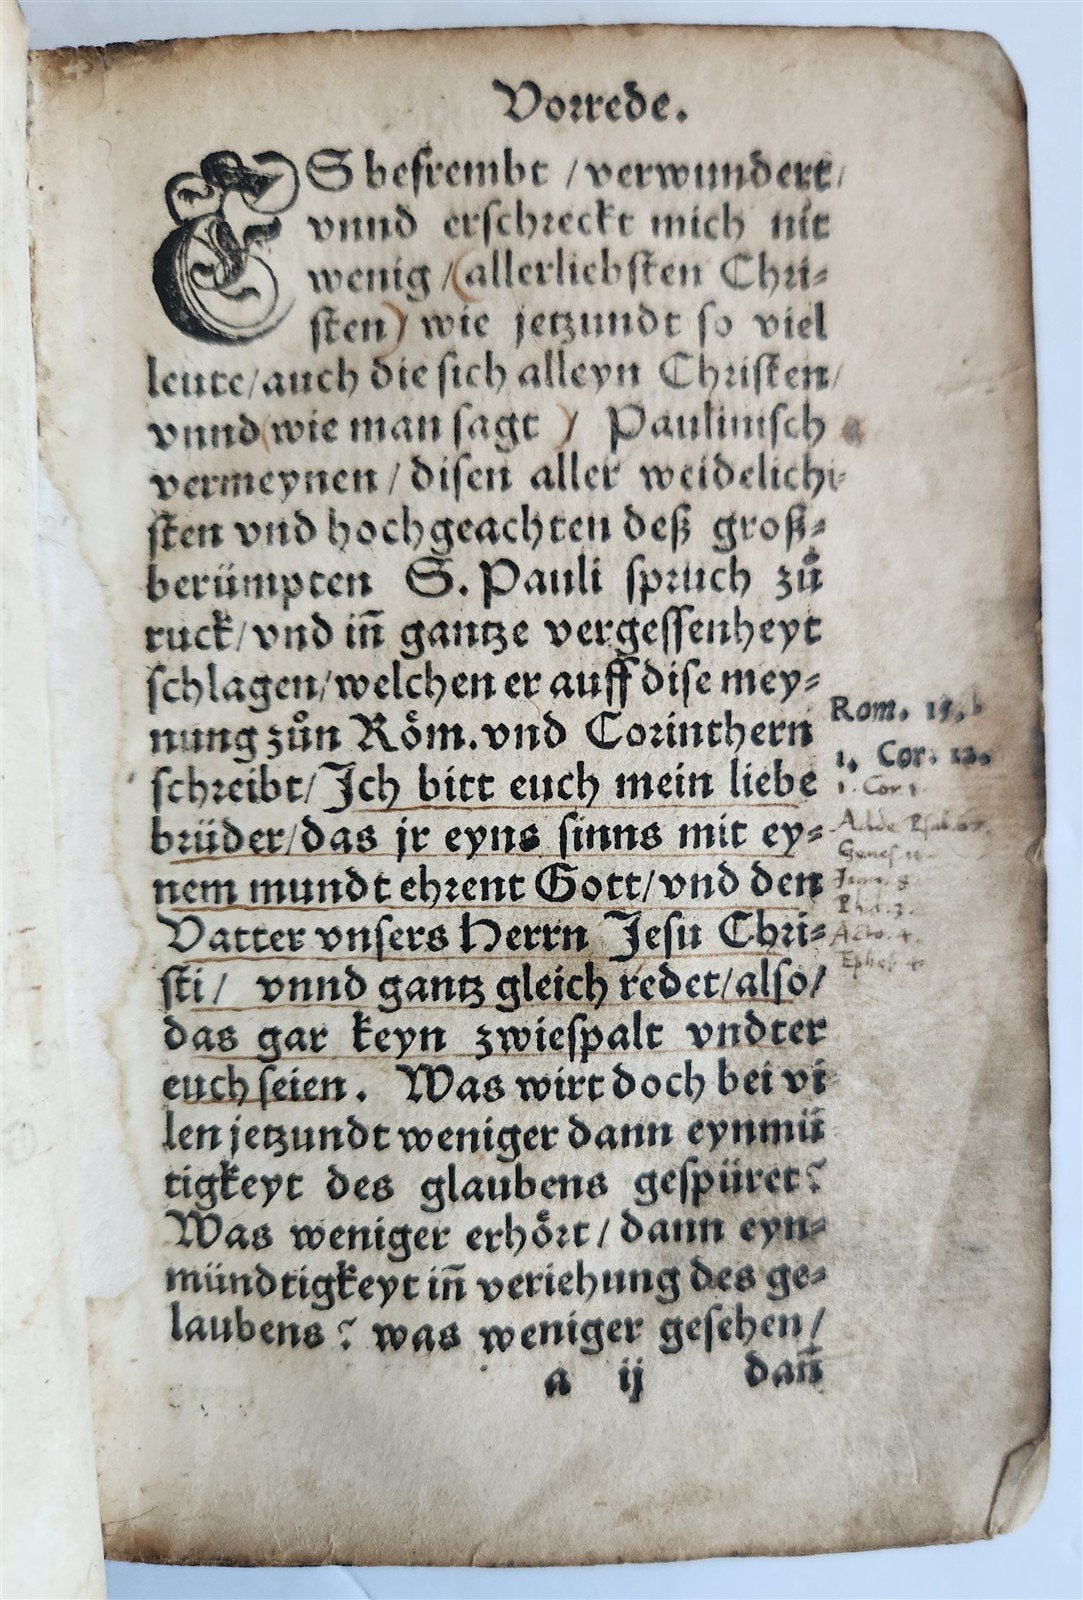 Vorrede.
ES befrembt / verwundert /
vnnd erschreckt mich nit
wenig / (allerliebsten Chri⸗
sten) wie jetzundt so viel
leute / auch die sich alleyn Christen /
vnnd (wie man sagt ) Paulinisch
vermeynen / disen aller weidelichi⸗
sten vnd hochgeachten deß groß⸗
berümpten S. Pauli spruch zů
ruck / vnd in̄ gantze vergessenheyt
schlagen / welchen er auff dise mey⸗
nung zůn Röm. vnd Corinthern
schreibt / Ich bitt euch mein liebe
brüder / das jr eyns sinns mit ey⸗
nem mundt ehrent Gott / vnd den
Vatter vnsers Herrn Jesu Chri⸗
sti / vnnd gantz gleich redet / also /
das gar keyn zwiespalt vndter
euch seien. Was wirt doch bei vi
len jetzundt weniger dann eynmü
tigkeyt des glaubens gespüret?
Was weniger erhört / dann eyn⸗
mündtigkeyt in̄ veriehung des ge⸗
laubens? was weniger gesehen /
a ij dan̄
Rom. 15. b
1. Cor. 12.
1. Cor 1.
Adde Psal.
Genes. 11.
Acto. 4.
Ephes. 4.